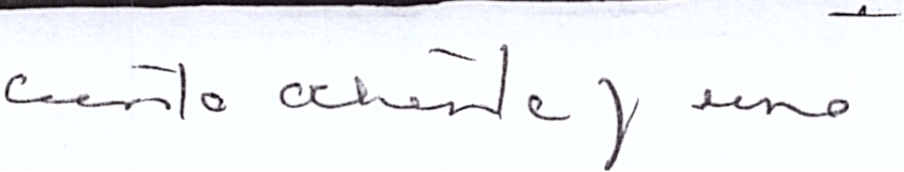 ciento ochenta y uno